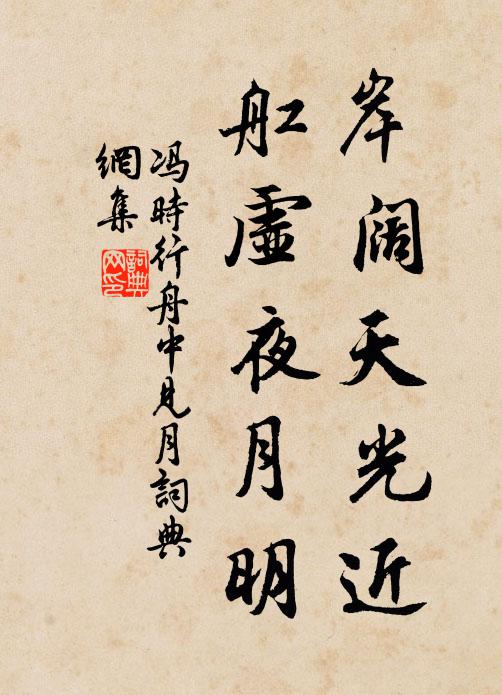 岸阔天光近
舡虛夜月明
冯時行舟中見月詞典
網集
詞典
网印